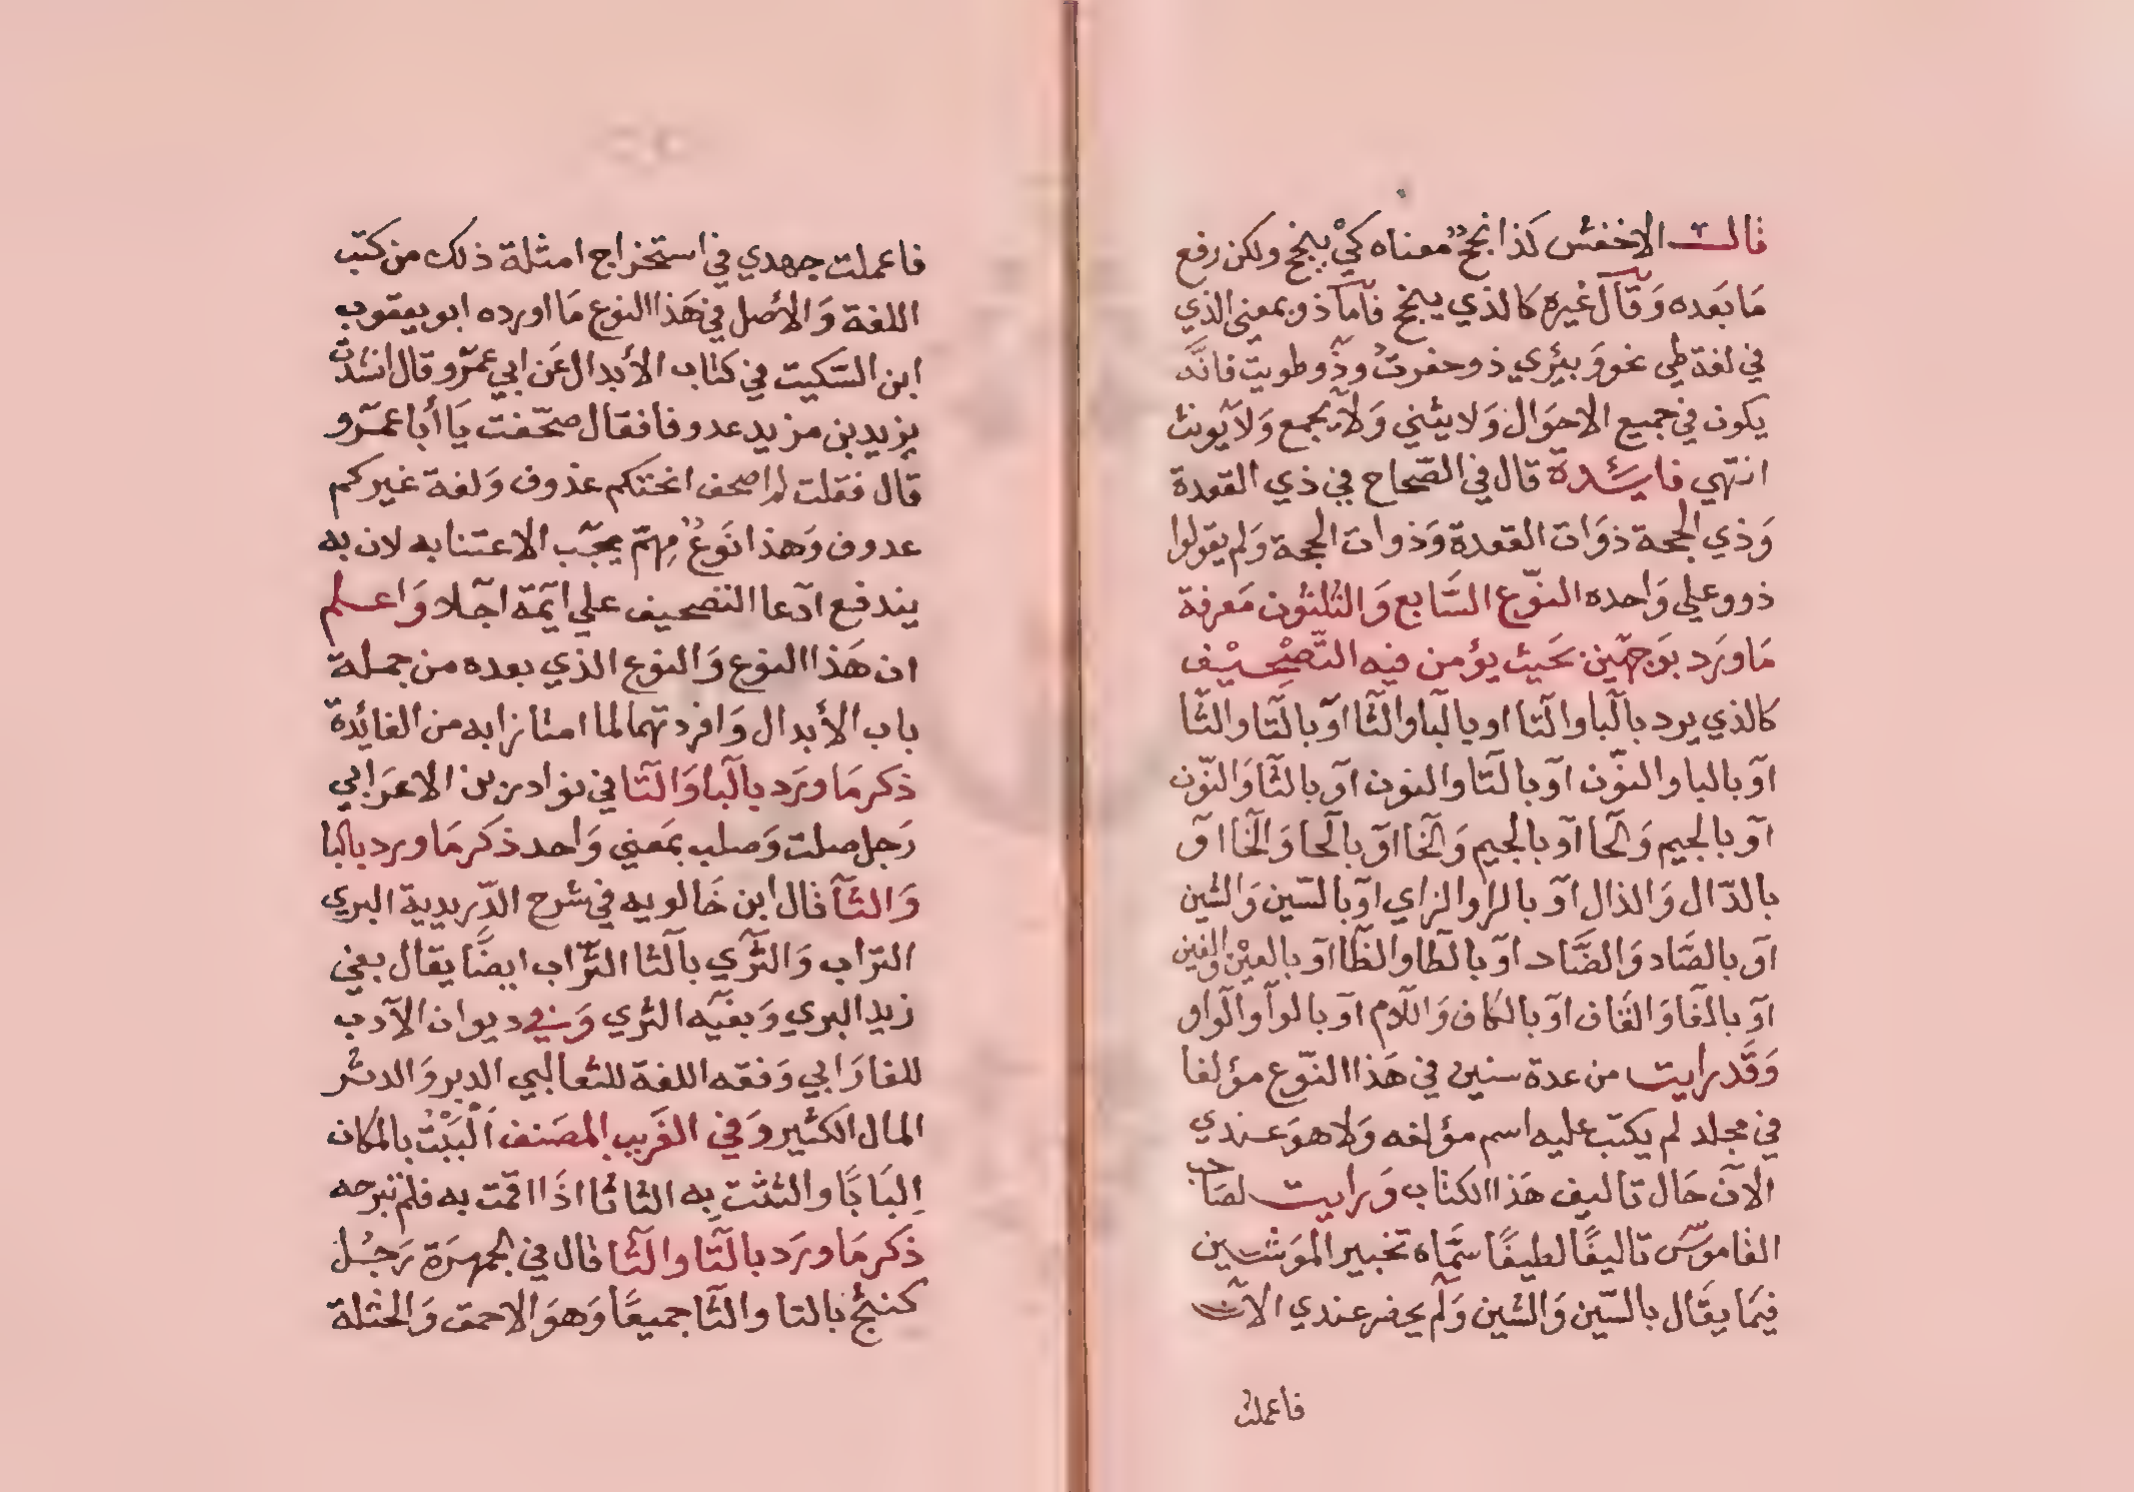 قالت الاخفش كذا نجح معناه كي ينجح ولكن رفع
مَا بَعده وَقال غيره كالذي ينجح فأما ذو بمعني الذي
في لغة طي نحو وَبيري ذو حفرت وذو طويت فانه
يكون في جميع الاحوَال وَلا يثني وَلا يجمع وَلا يونث
انتهي فايدة قال في الصّحاح في ذي القعدة
وَذي الحجة ذوَات القعدة وَذوات الحجة وَلم يقولوا
ذوو علي وَاحده النوّع السَّابع وَالثلثون مَعرفة
مَا ورَد بوَجهين بحَيث يؤمن فيه التّصْحيْف
كالذي يرد بالبا والتا او بالبا والثا اوَ بالتا والثا
اوَ بالبا والنوّن اوَ بالتا والنون اوَ بالثا وَالنّون
اوَ بالجيم وَالحا اوَ بالجيم وَالخا اوَ بالحا وَالخا اوَ
بالدّال وَالذال اوَ بالرا والزاي اوَ بالسّين وَالشين
اوَ بالصَّاد وَالضَّاد اوَ بالطا والظا اوَ بالعيْن والغين
اوَ بالفا وَالقَاف اوَ بالكاف وَاللام اوَ بالرا والوَاو
وَقَد رايت من عدة سنين في هَذا النوّع مؤلفا
في مجلد لم يكتب عليه اسم مؤلفه وَلا هوَ عندي
الآن حَال تاليف هَذا الكتاب وَرايت لصَاحب
القاموس تاليفًا لطيفًا سمَّاه تحبير الموَشين
فيمَا يقَال بالسّين وَالشين وَلم يحضر عندي الآن
فاعملت
فاعملت جهدي في استخراج امثلة ذلك من كتب
اللغة وَالأصل في هَذا النوع مَا اورده ابو يعقوب
ابن السّكيت في كتاب الأبدال عَن ابي عمَرو قال انشدت
يزيد بن مزيد عدوفا فقال صحّفت يَا أبا عمَرو
قال فقلت لم اصحف لغتكم عذوف وَلغة غيركم
عدوف وَهذا نَوعٌ مِهمّ يجبَ الاعتنا به لان به
يندفع ادّعا التصحيف علي ايمَة اجَلا وَاعلم
ان هَذا النوع وَالنوع الذي بعده من جملة
باب الأبدال وَافردتهما لما امتازا به من الفائدة
ذكر مَا ورَد بالبا وَالتا في نوادر بن الاعرَابي
رَجل صلت وَصلب بمَعني وَاحد ذكر مَا ورد بالبا
وَالثا قال ابن خَالويه في شرح الدّريدية البري
التراب وَالثري بالثا التّراب ايضًا يقال بفي
زيد البري وَبفيَه الثري وَفي ديوان الأدب
للفارَابي وَفقه اللغة للثعالبي الدبر وَالدثر
المال الكثير وَفي الغريب المصَنف اَلْبَبْتُ بالمكان
اِلبَابًا والثثت بِه الثاثا اذَا اقمت به فلم تبرحه
ذكر مَا ورَد بالتا والثا قال في الجمهرَة رَجُل
كنثج بالتا والثا جميعًا وَهوَ الاحمق وَالحثلة